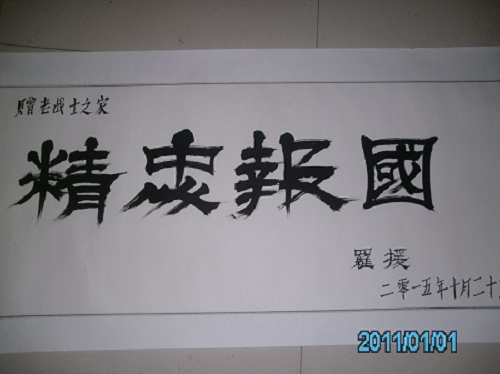 赠老战士之家
精忠報國
羅援
二零一五年十月二十
2011/01/01